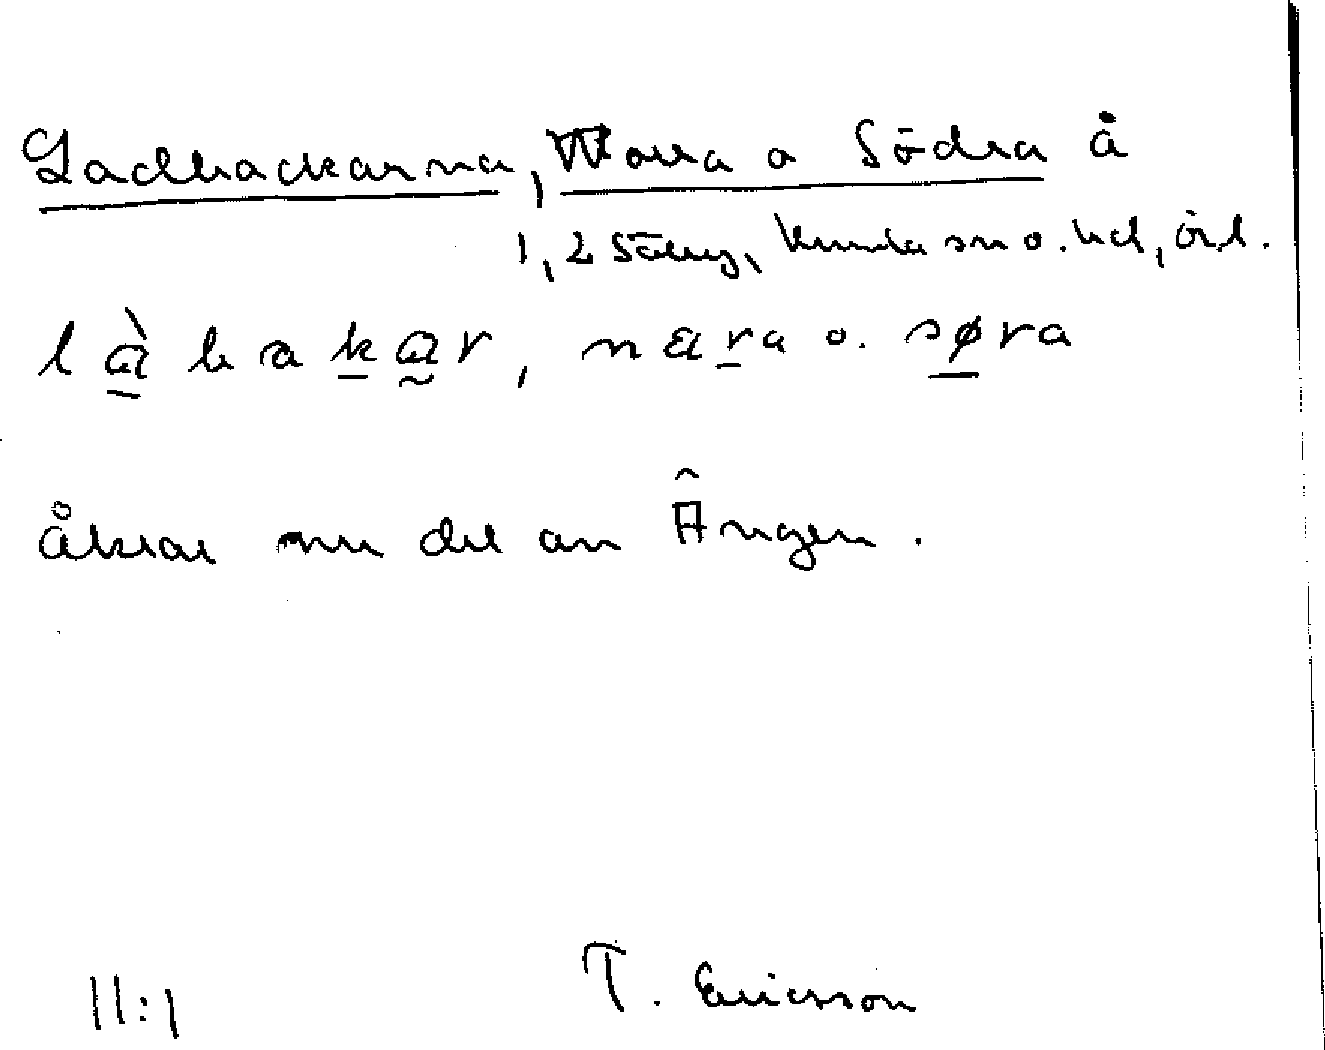 Ladbackarna, Norra o Södra å
1, 2 Säby, Kumla sn o. hd, örl.
l à b a k a r, n æ r a o. s ø r a
Åkrar nu del av Ängen.
11:1 T. Ericsson